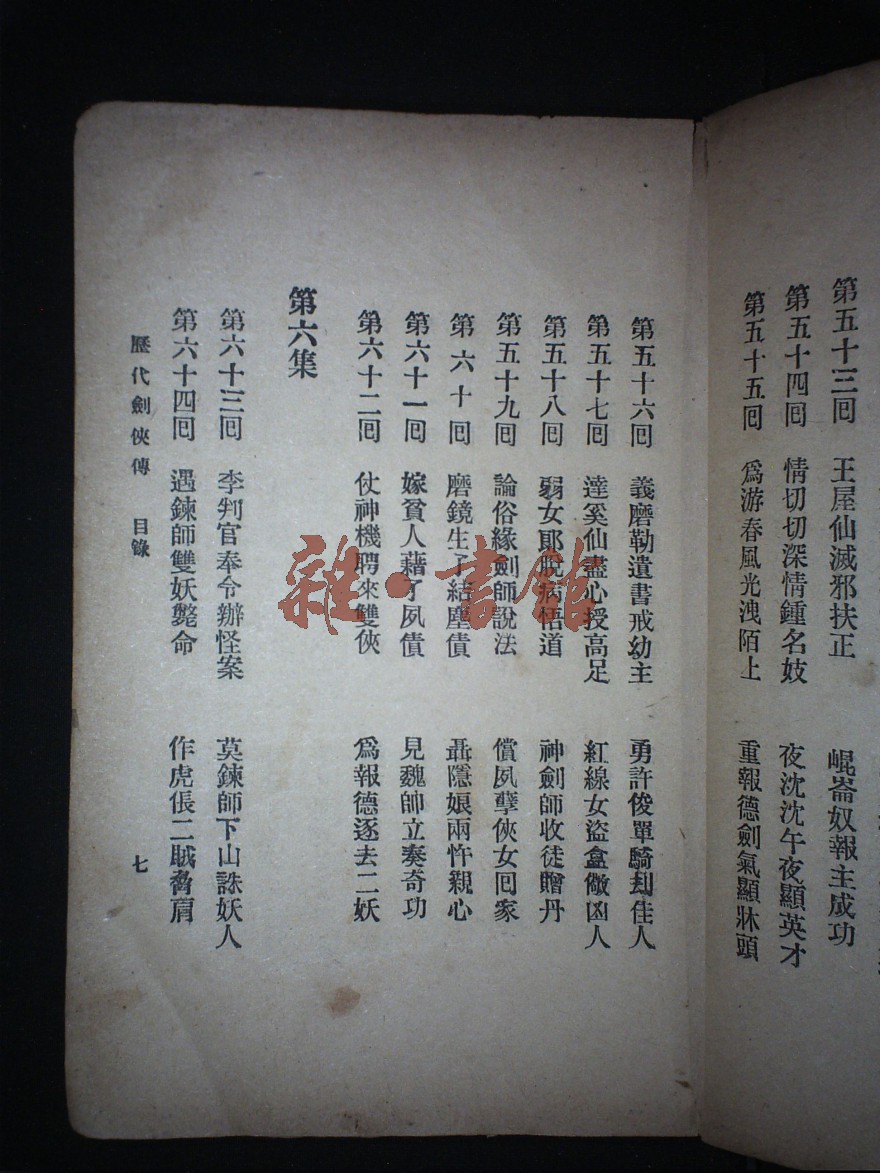 第五十三回 王屋仙滅邪扶正 崐崙奴報主成功
第五十四回 情切切深情鍾名妓 夜沈沈午夜顯英才
第五十五回 爲游春風光洩陌上 重報德劍氣顯牀頭
第五十六回 義磨勒遺書戒幼主 勇許俊單騎刦佳人
第五十七回 達奚仙盡心授高足 紅線女盜盒儆凶人
第五十八回 弱女郞脫病悟道 神劍師收徒贈丹
第五十九回 論俗緣劍師說法 償夙孽俠女回家
第六十回 磨鏡生了結塵債 聶隱娘兩忤親心
第六十一回 嫁貧人藉了夙債 見魏帥立奏奇功
第六十二回 仗神機聘來雙俠 爲報德逐去二妖
第六集
第六十三回 李判官奉令辦怪案 莫鍊師下山誅妖人
第六十四回 遇鍊師雙妖斃命 作虎倀二賊喬肩
歷代劍俠傳 目錄 七
雜·書館